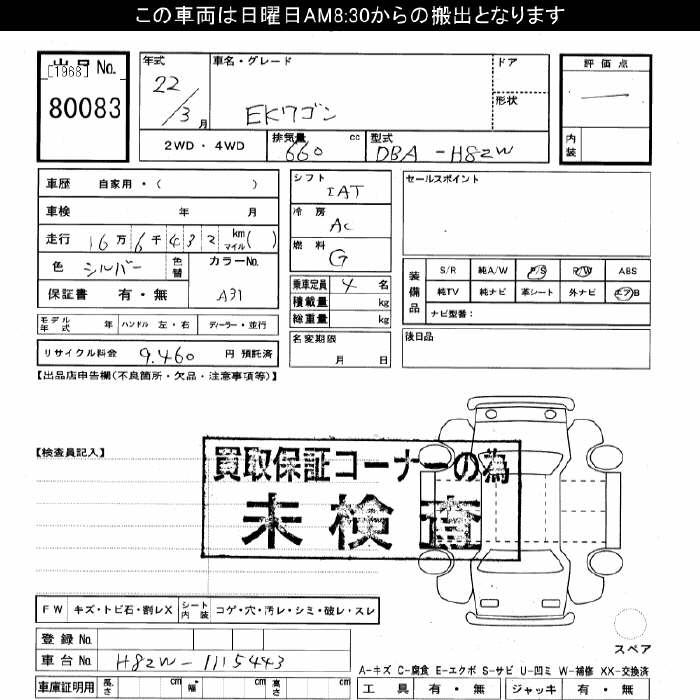 この車両は日曜日AM8:30からの搬出となります
出品 No.
[1968]
80083
年式
22/3 月
車名・グレード
EKワゴン
ドア
形状
評価点
内装
2WD・4WD
排気量 660 cc
型式 DBA-H82W
車歴 自家用・( )
車検 年 月
走行 16万6千432 km マイル( )
色 シルバー 色替
カラーNo. A31
保証書 有・無
モデル年式 年 ハンドル 左・右 ディーラー・並行
リサイクル料金 9,460 円 預託済
シフト IAT
冷房 AC
燃料 G
乗車定員 4 名
積載量 kg
総重量 kg
名変期限 月 日
セールスポイント
装備品
S/R 純A/W P/S P/W ABS
純TV 純ナビ 革シート 外ナビ エアB
ナビ型番:
後日品
【出品店申告欄(不良箇所・欠品・注意事項等)】
【検査員記入】
買取保証コーナーの為
未検査
FW キズ・トビ石・割レX シート内装 コゲ・穴・汚レ・シミ・破レ・スレ
登録 No.
車台 No. H82W-1115443
車庫証明用 長さ cm 幅 cm 高さ cm
スペア
A-キズ C-腐食 E-エクボ S-サビ U-凹ミ W-補修 XX-交換済
工具 有・無 ジャッキ 有・無